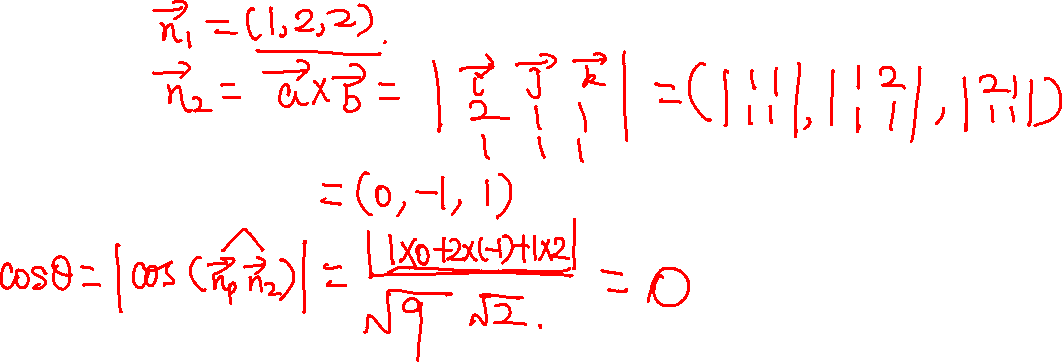 $\vec{n}_1 = (1,2,2).$
$\vec{n}_2 = \vec{a} \times \vec{b} = \begin{vmatrix} \vec{i} & \vec{j} & \vec{k} \\ 2 & 1 & 1 \\ 1 & 1 & 1 \end{vmatrix} = \left( \begin{vmatrix} 1 & 1 \\ 1 & 1 \end{vmatrix}, \begin{vmatrix} 1 & 2 \\ 1 & 1 \end{vmatrix}, \begin{vmatrix} 2 & 1 \\ 1 & 1 \end{vmatrix} \right)$
$= (0, -1, 1)$
$\cos\theta = |\cos(\widehat{\vec{n}_1, \vec{n}_2})| = \frac{|1 \times 0 + 2 \times (-1) + 1 \times 2|}{\sqrt{9} \sqrt{2}.} = 0$